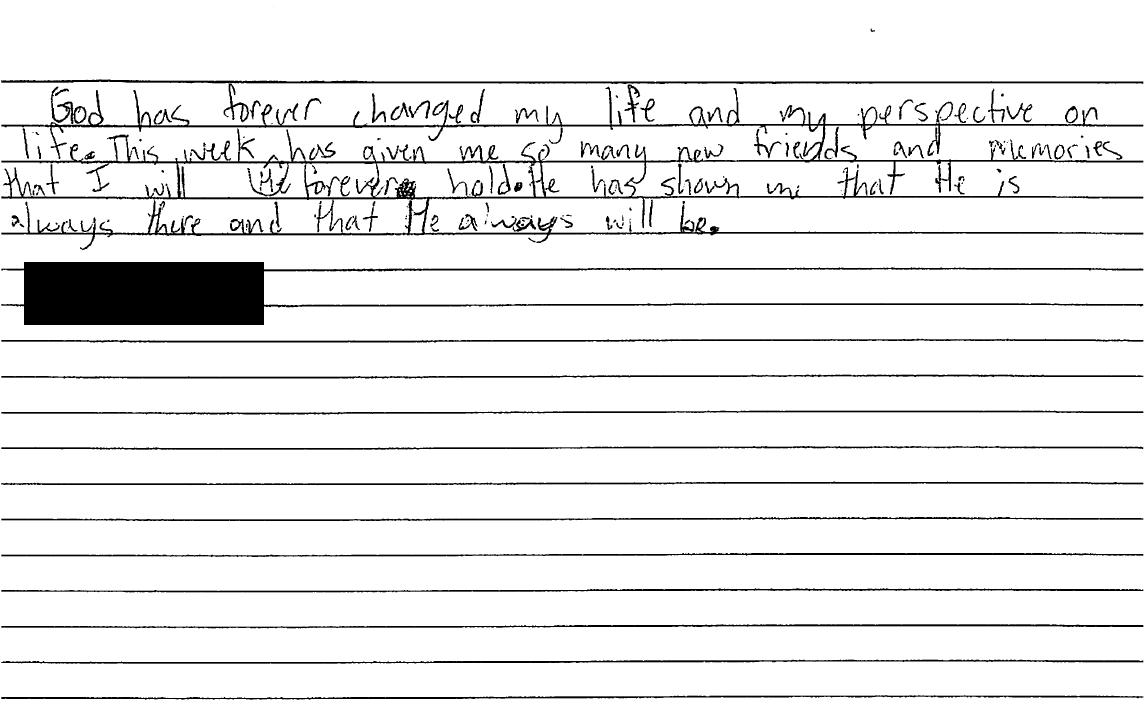 God has forever changed my life and my perspective on
life. This week He has given me so many new friends and memories
that I will forever hold. He has shown me that He is
always there and that He always will be.